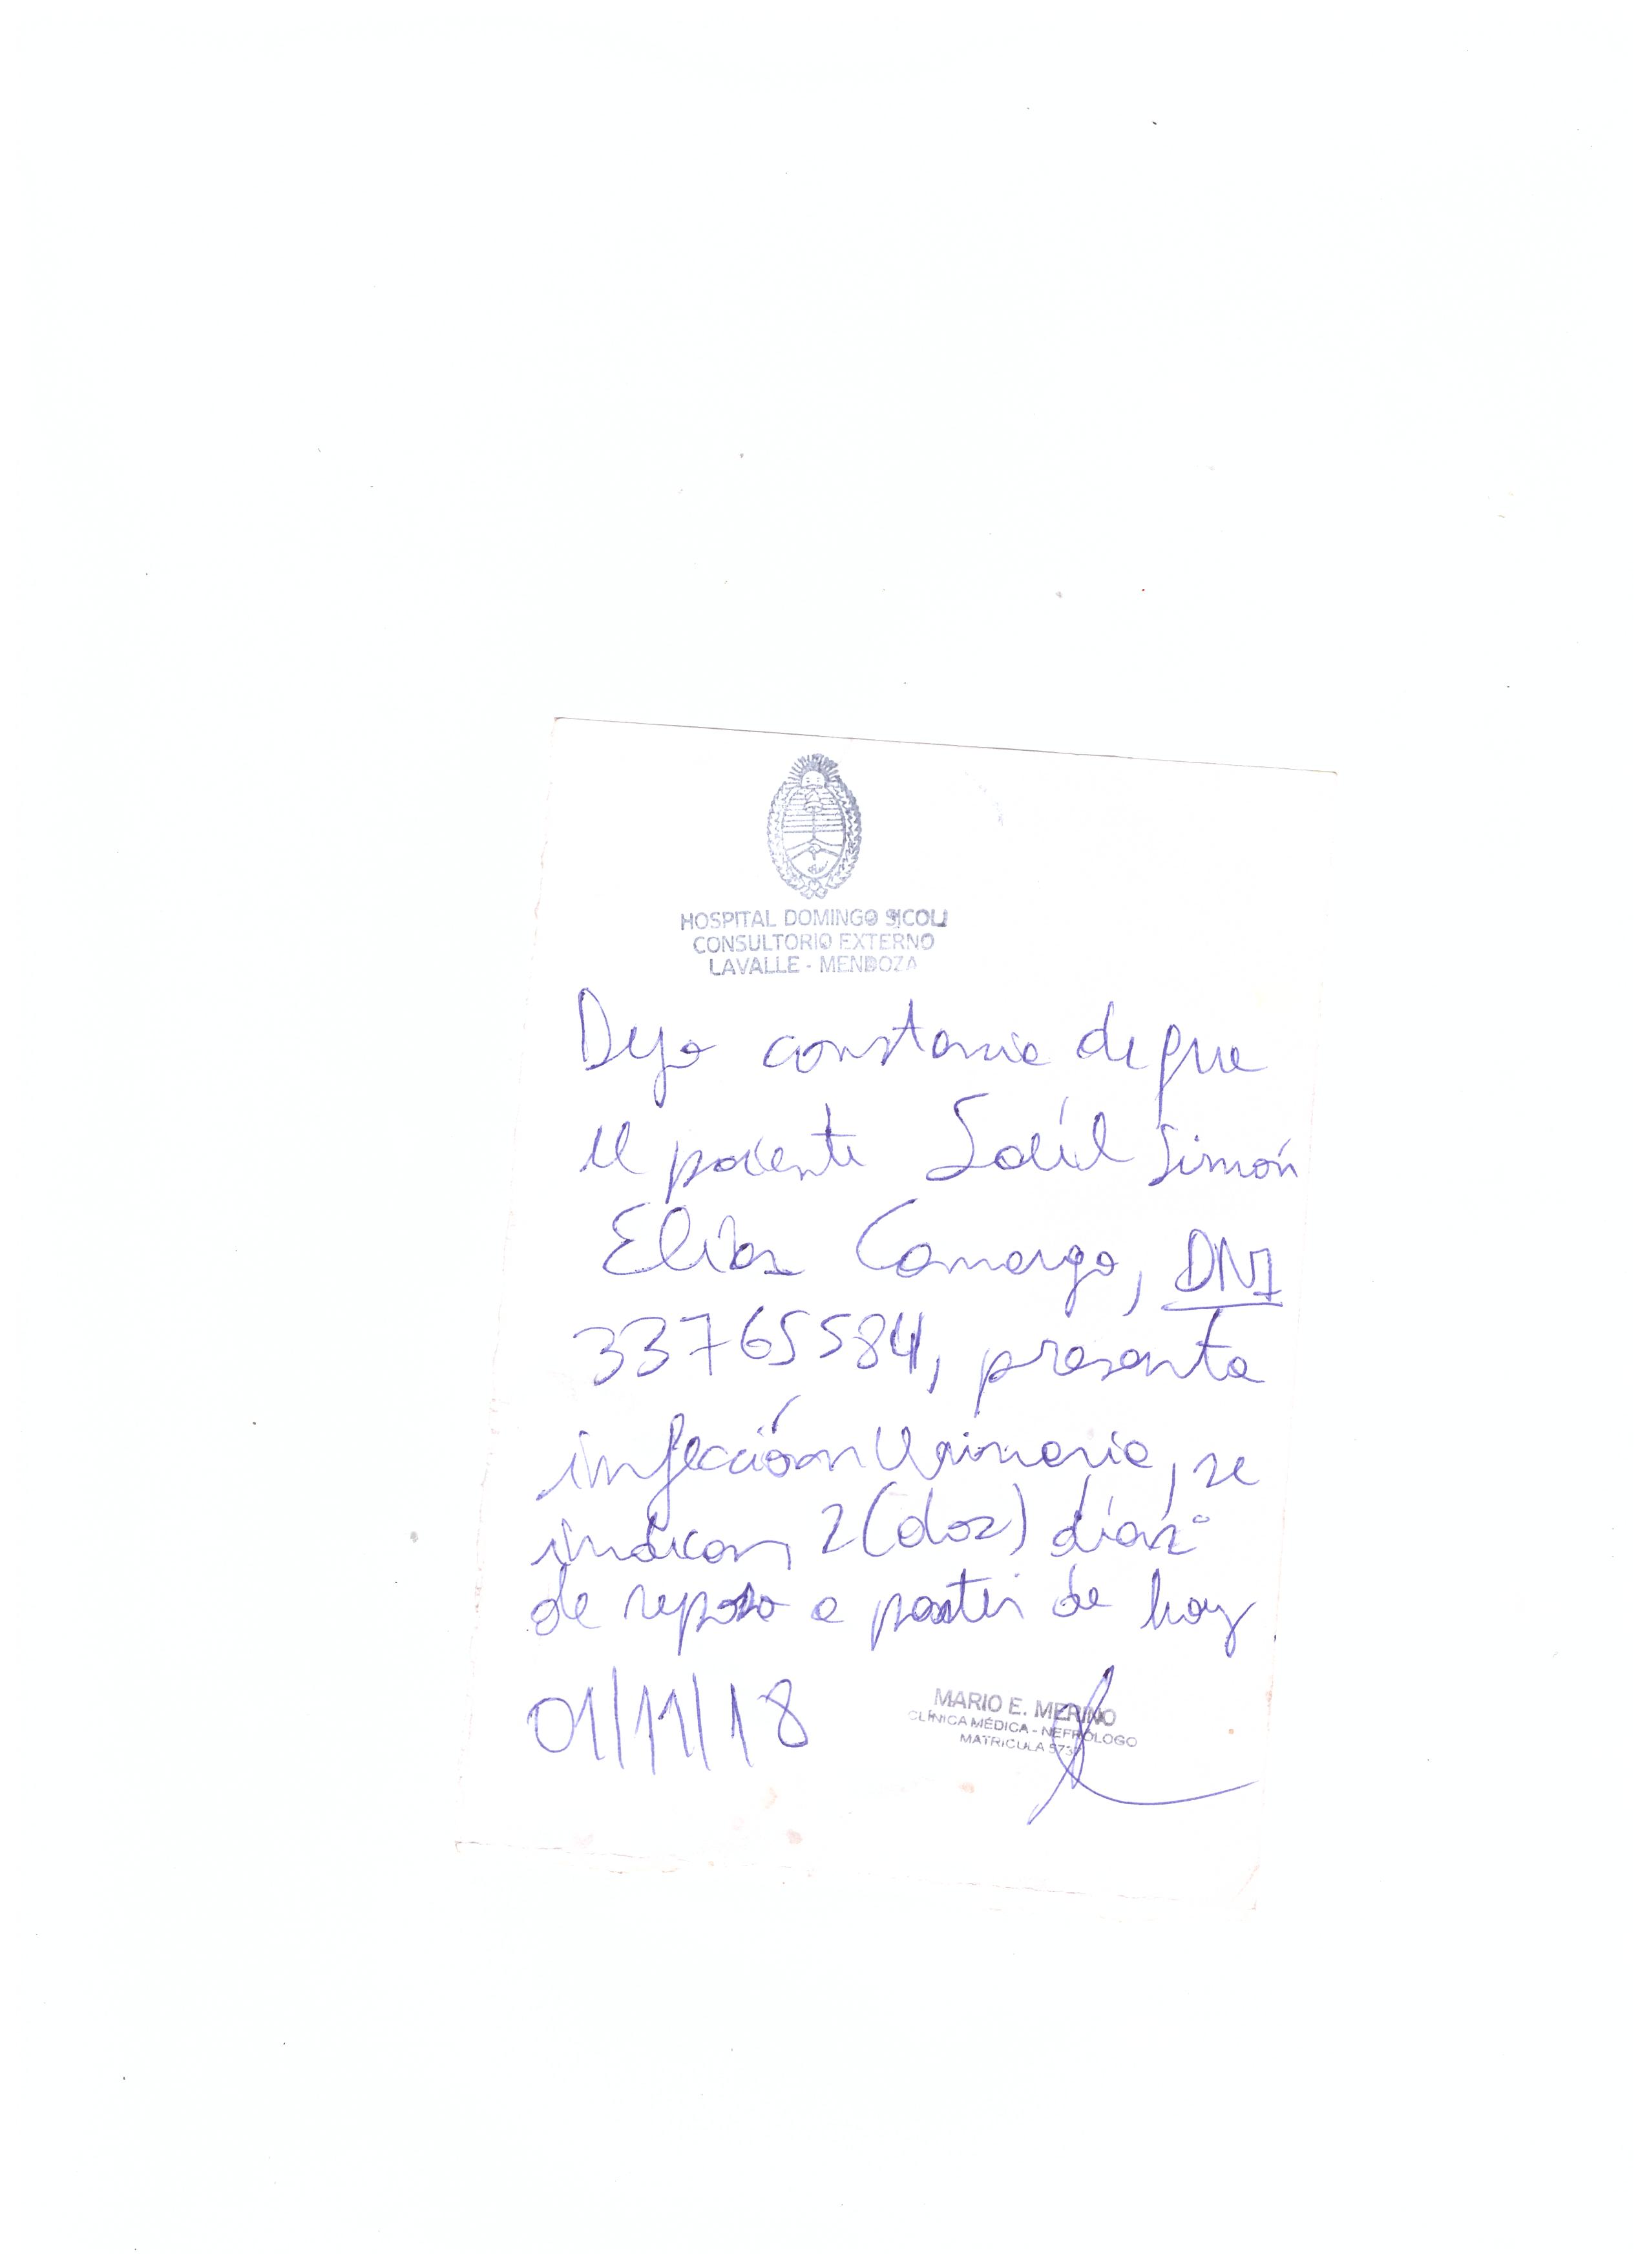 HOSPITAL DOMINGO SICOLI
CONSULTORIO EXTERNO
LAVALLE - MENDOZA
Dejo constancia de que
el paciente Saúl Simón
Elías Camargo, DNI
33765584, presenta
infección Urinaria, se
indican 2 (dos) días
de reposo a partir de hoy
01/11/18
MARIO E. MERINO
CLÍNICA MÉDICA - NEFRÓLOGO
MATRICULA